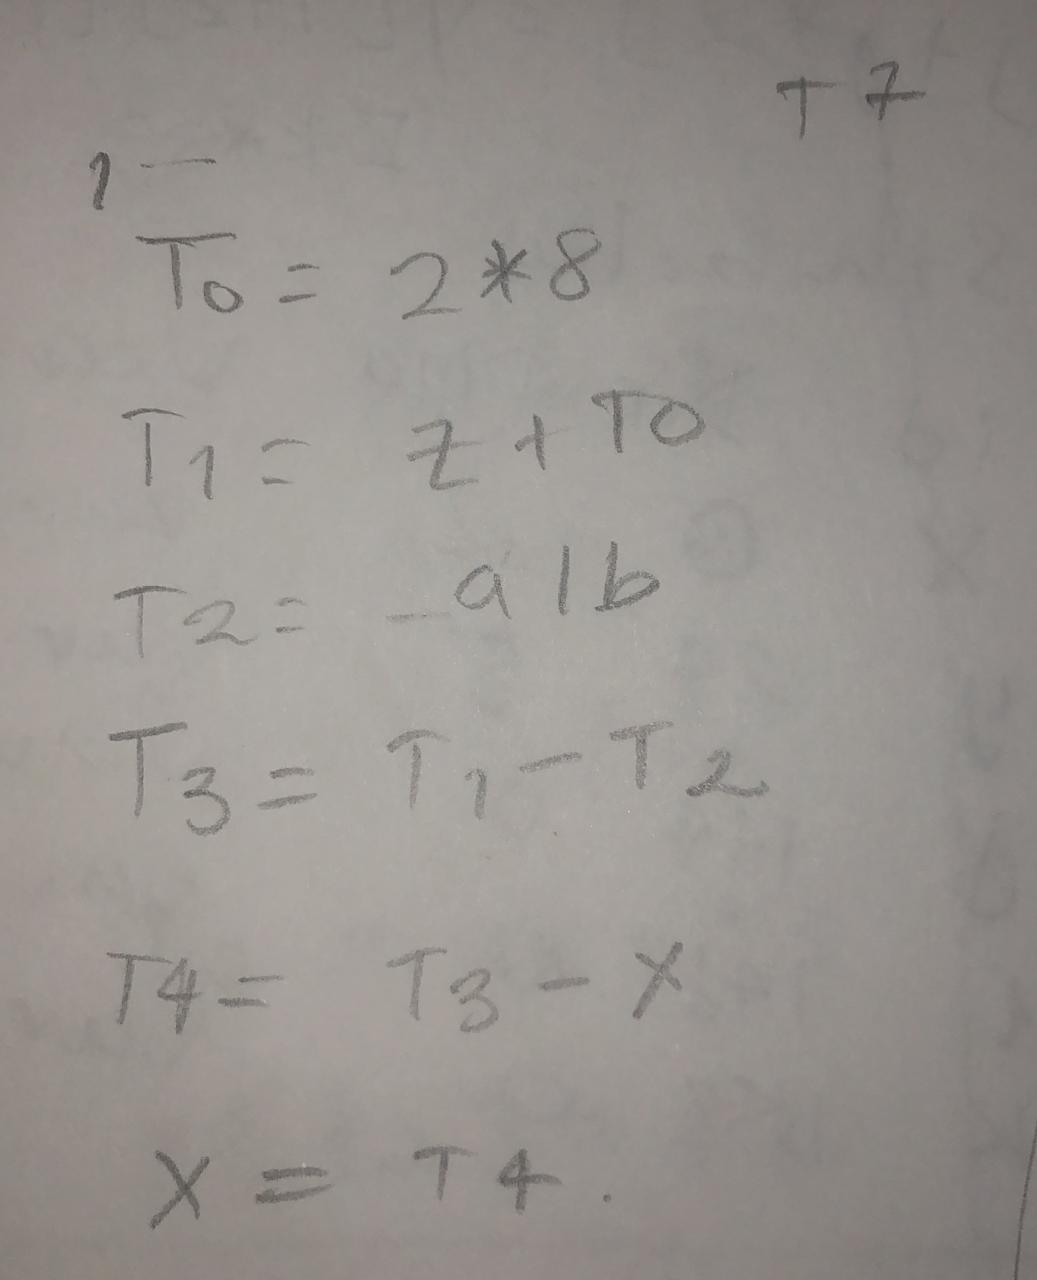 T7
1-
T0 = 2*8
T1 = z + T0
T2 = -a/b
T3 = T1 - T2
T4 = T3 - X
X = T4.